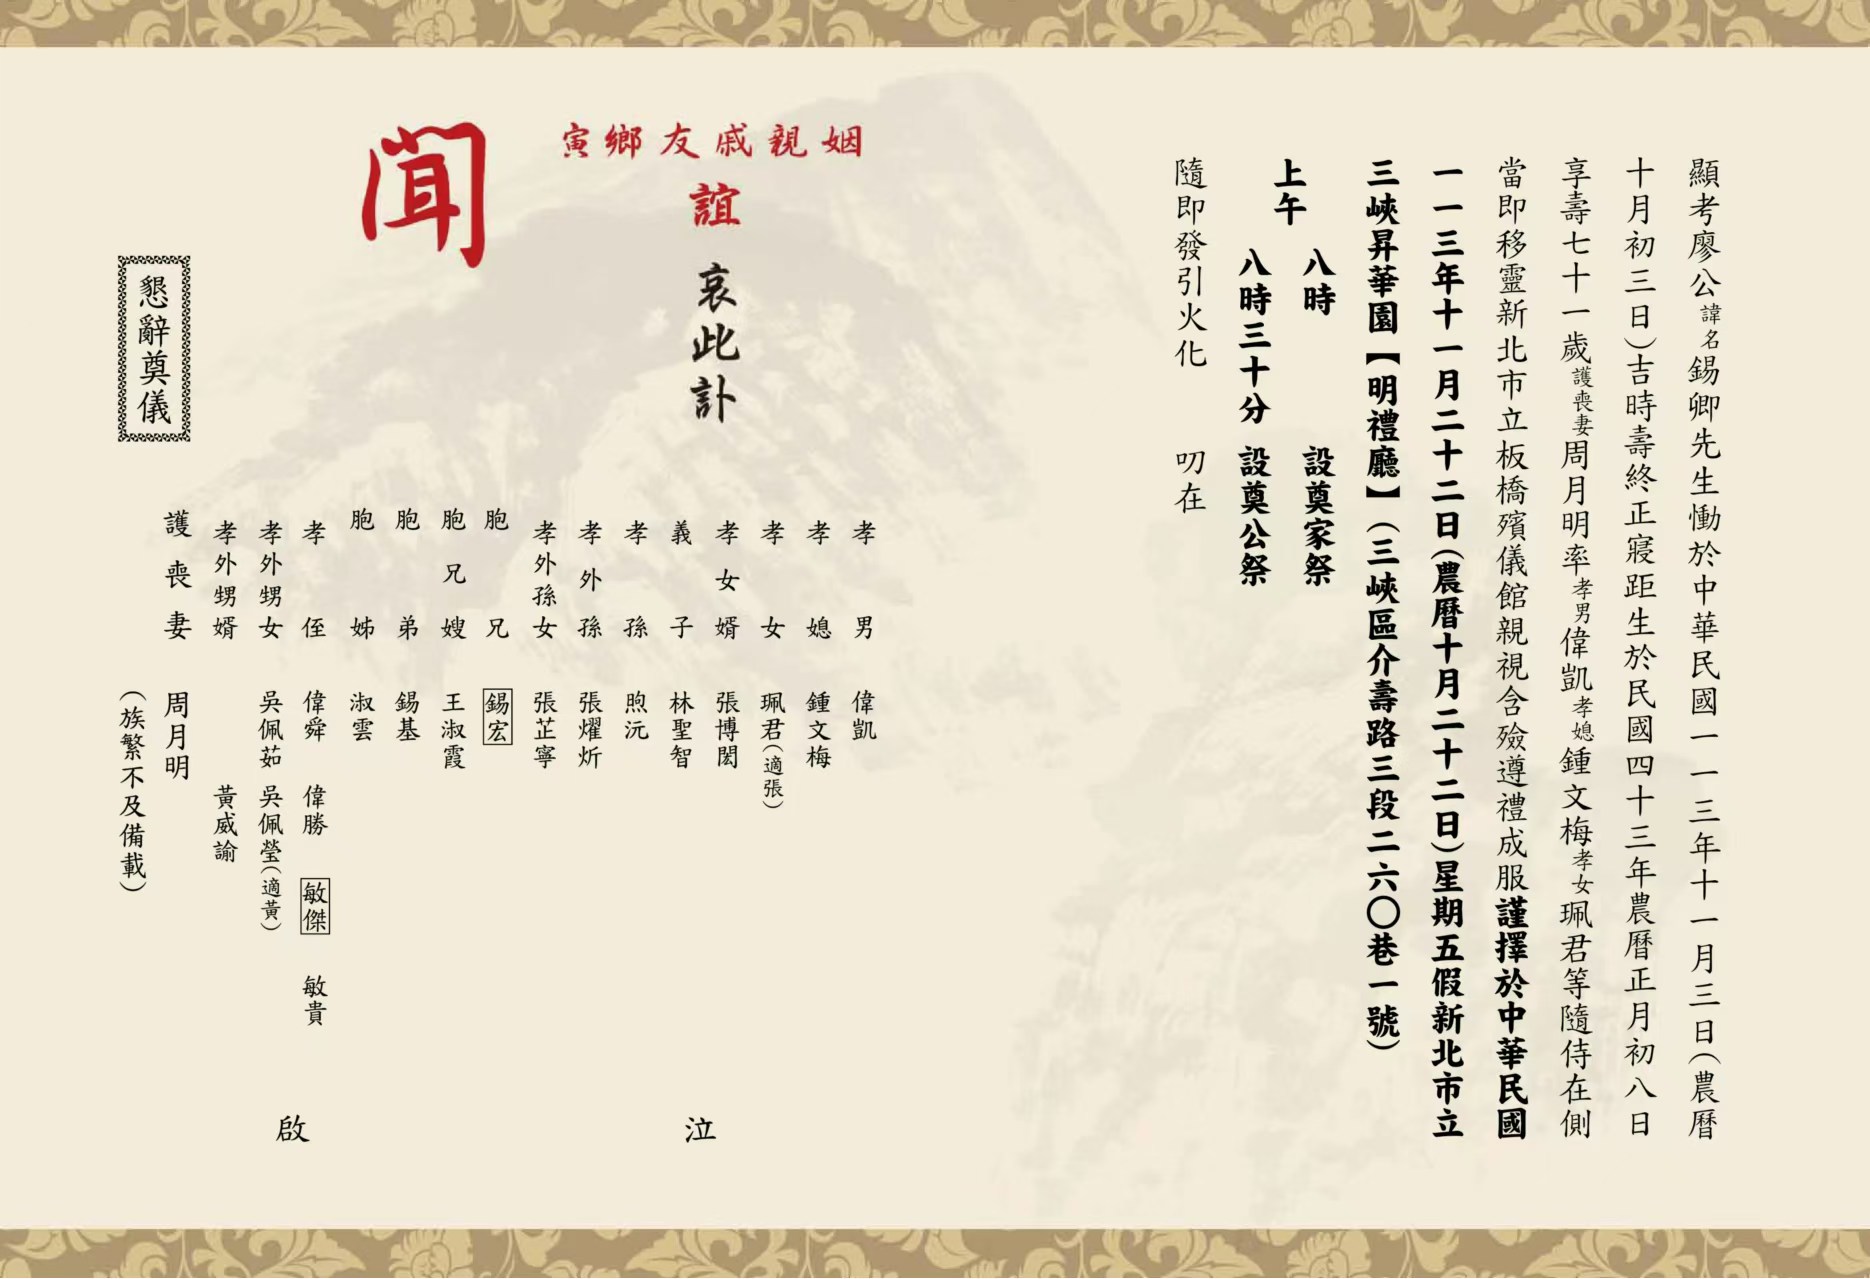 顯考廖公諱名錫卿先生慟於中華民國一一三年十一月三日(農曆
十月初三日)吉時壽終正寢距生於民國四十三年農曆正月初八日
享壽七十一歲護喪妻周月明率孝男偉凱孝媳鍾文梅孝女珮君等隨侍在側
當即移靈新北市立板橋殯儀館親視含殮遵禮成服謹擇於中華民國
一一三年十一月二十二日(農曆十月二十二日)星期五假新北市立
三峽昇華園【明禮廳】(三峽區介壽路三段二六〇巷一號)
上午
八時 設奠家祭
八時三十分 設奠公祭
隨即發引火化 叨在
姻親戚友鄉寅
誼
哀此訃
聞
孝男 偉凱
孝媳 鍾文梅
孝女 珮君(適張)
孝女婿 張博閎
義子 林聖智
孝孫 煦沅
孝外孫 張燿炘
孝外孫女 張芷寧
胞兄 錫宏
胞兄嫂 王淑霞
胞弟 錫基
胞姊 淑雲
孝侄 偉舜 偉勝 敏傑 敏貴
孝外甥女 吳佩茹 吳佩瑩(適黃)
孝外甥婿 黃威諭
護喪妻 周月明
(族繁不及備載)
泣
啟
懇辭奠儀